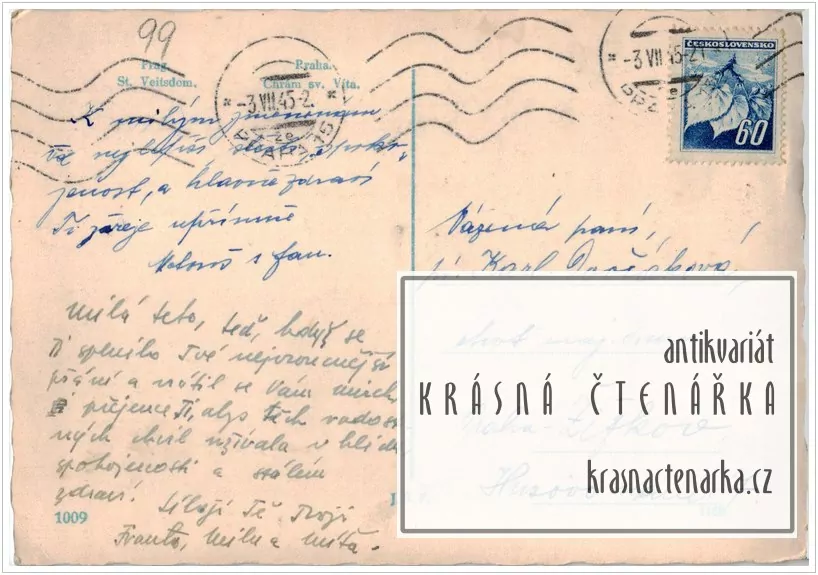 99
Prag. Praha.
St. Veitsdom. Chrám sv. Víta.
-3.VII.45-2.
-3 VII 45-2
ČESKOSLOVENSKO
60
K milým jmeninám
a hlavně zdraví
Ti přeje upřímně
Miloš s fam.
Milá teto, teď, když se
Ti splnilo Tvé nejvroucnější
přání a vrátil se Vám
přejeme Ti, abys těch rados-
ných chvil užívala v klidu,
spokojenosti a stálém
zdraví.
Líbají Tě Tvoji
Franta, Milu a Míťa.
1009
Vážená paní,
Karl Dvořáková,
Praha-Žižkov,
Husova
antikvariát
KRÁSNÁ ČTENÁŘKA
krasnactenarka.cz